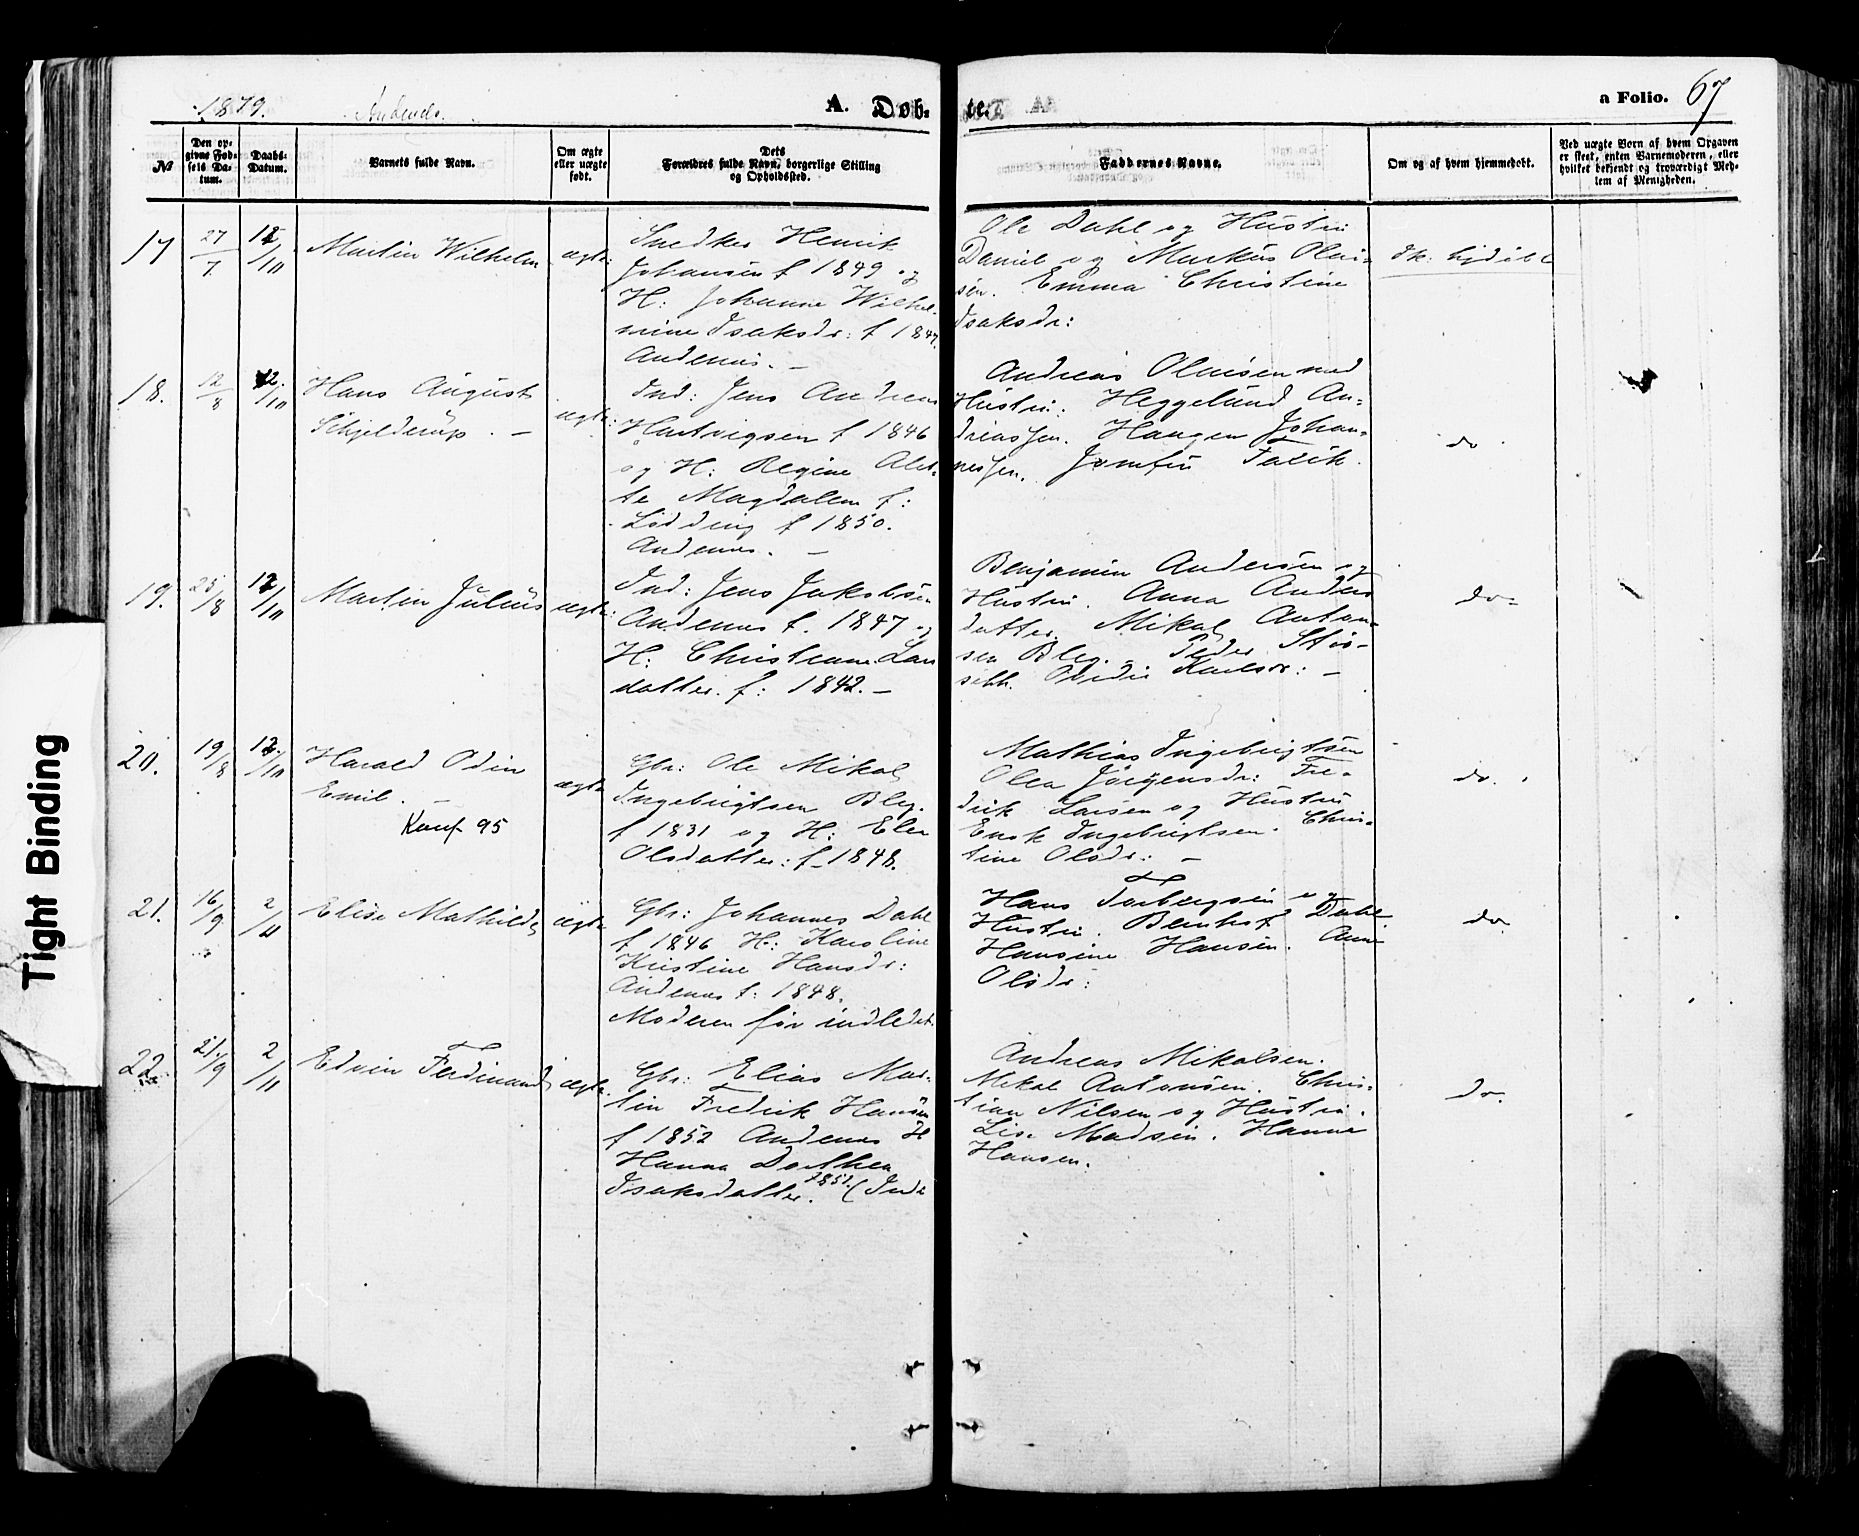 1879. Andenes.
A. Døb-
te.
a Folio. 67
№
Den op-
givne Fød-
sels Da-
tum.
Daabs-
Datum.
Barnets fulde Navn.
Om ægte
eller uægte
født.
Dets
Forældres fulde Navn, borgerlige Stilling
og Opholdssted.
Faddernes Navne.
Om og af hvem hjemmedøbt.
Ved uægte Børn af hvem Opgaven
er skeet, enten Barnemoderen, eller
hvilket bekjendt og troværdigt Med-
lem af Menigheden.
17
27/7
12/10
Martin Wilhelm
ægte
Snedker Henrik
Johansen f 1849 og
H: Johanne Wilhel-
mine Isaksdr: f 1847.
Andenes. –
Ole Dahl og Hustru
Daniel og Markus Olai-
sen. Emma Christine
Isaksdr:
18.
12/8
12/10
Hans August
Schjelderup. –
ægte:
Ind: Jens Andreas
Hartvigsen f 1846
og H: Regine Alet-
te Magdalene f:
Lødding f 1850.
Andenes. –
Andreas Olaisen med
Hustru. Heggelund An-
dreassen. Haagen Johan-
nessen. Jomfru Falck.
do
19.
25/8
12/10
Martin Julius
ægte:
Ind: Jens Jakobsen
Andenes f. 1847 og
H: Christiane Lars
datter. f: 1842. –
Benjamin Andersen og
Hustru. Anna Anders
datter. Mikal Anton-
sen Bleg. Peder
Karlsdr: –
do-
20.
19/8
12/10
Harald Odin
Emil. –
Konf. 95
ægte
Gbr: Ole Mikal
Ingebrigtsen Bleg.
f 1831 og H: Elen
Olsdatter: f. 1848.
Mathias Ingebrigtsen
Olea Jörgensdr: Fre-
drik Larsen og Hustru
Enok Ingebrigtsen. Chris-
tine Olsdr: –
do.
21.
16/9
2/11
Elise Mathilde
ægte
Gbr: Johannes Dahl
f 1846 H: Karoline
Kristine Hansdr:
Andenes f: 1848.
Moderen før indledet.
Hans Torbergsen og
Hustru. Bernhof Dahl
Hansine Hansen. Anne
Olsdr:
do
22.
21/9
2/11
Edvin Ferdinand
ægte.
Gbr: Elias Mar-
tin Fredrik Hansen
f 1852 Andenes H
Hanna Dorthea
Isaksdatter. 1851. (Inde
Andreas Mikalsen.
Mikal Antonsen. Chris-
tian Nilsen og Hustru.
Lise Madsen. Hanna
Hansen.
do.
Tight Binding